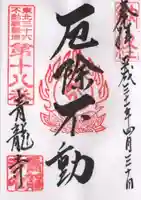 奉拝
年四月三十日
厄除不動
東北三十六
不動尊霊場
第十八番
青龍寺